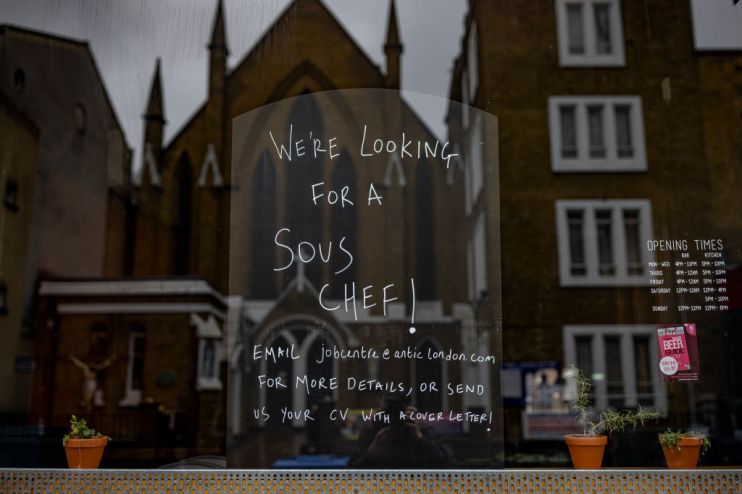 WE'RE LOOKING
FOR A
SOUS
CHEF!
EMAIL jobcentre@anticlondon.com
FOR MORE DETAILS, OR SEND
US YOUR CV WITH A COVER LETTER!
OPENING TIMES
BAR KITCHEN
MON - WED 4PM - 11PM 5PM - 10PM
THURS 4PM - 12AM 5PM - 10PM
FRIDAY 4PM - 12AM 5PM - 10PM
SATURDAY 12PM - 12AM 12PM - 4PM
5PM - 10PM
SUNDAY 12PM - 11PM
BEER
GUIDE